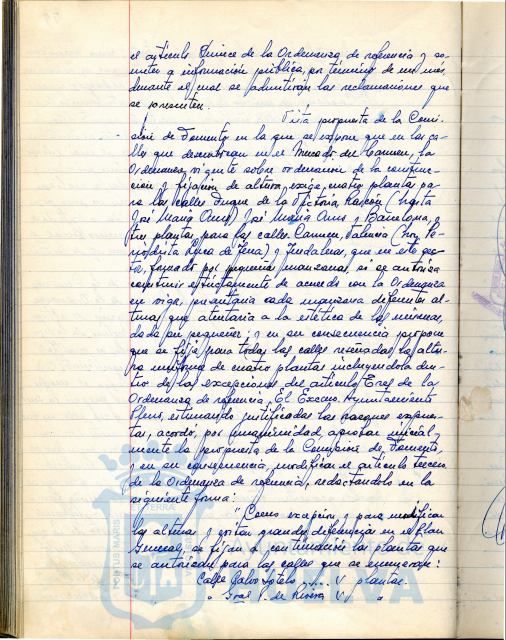 el artículo Quince de la Ordenanza de referencia y so-
meter a información pública, por término de un mes,
durante el cual se admitirán las reclamaciones que
se presenten.
Vista propuesta de la Comi-
sión de Fomento en la que se expone que en las ca-
lles que desembocan en el Mercado del Carmen, la
Ordenanza vigente sobre ordenación de la construc-
ción y fijación de altura, exige cuatro plantas pa-
ra las calles Duque de la Victoria, Rascón (hasta
José María Amo) José María Amo y Barcelona, y
tres plantas para las calles Carmen, Valencia (hoy
Luca de Tena) y que en este
formado por pequeñas manzanas, si se autoriza
construir estrictamente de acuerdo con la Ordenanza
en vigor, presentaría cada manzana diferentes al-
turas que atentaría a la estética de las mismas,
dada su pequeñez; y en su consecuencia propone
que se fije para todas las calles reseñadas, la altu-
ra uniforme de cuatro plantas incluyéndola den-
tro de las excepciones del artículo Tres de la
Ordenanza de referencia. El Excmo. Ayuntamiento
Pleno, estimando justificadas las razones expues-
tas, acordó, por unanimidad, aprobar inicial-
mente la propuesta de la Comisión de Fomento,
y en su consecuencia, modificar el artículo tercero
de la Ordenanza de referencia, redactándolo en la
siguiente forma:
"Como excepción y para modificar
las alturas y evitar grandes diferencias en el Plan
General, se fijan a continuación las plantas que
se autorizan para las calles que se enumeran:
Calle Calvo Sotelo ..... V plantas.
" Gral. P. de Rivera V "